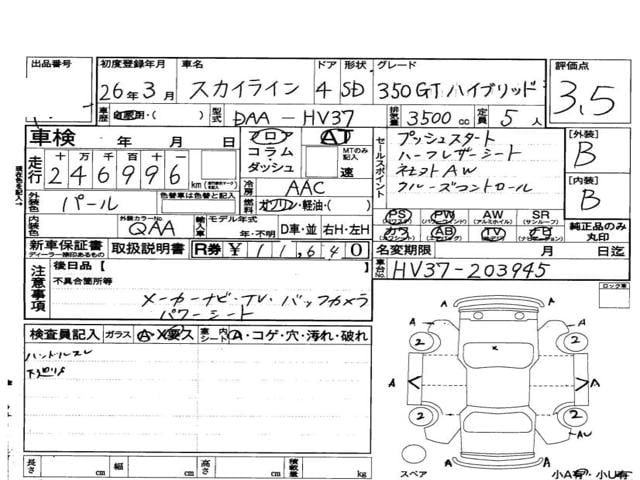 出品番号
初度登録年月 車名 ドア 形状 グレード 評価点
26年3月 スカイライン 4 SD 350GT ハイブリッド 3.5
車歴 自家用・( ) 型式 DAA-HV37 排気量 3500 cc 定員 5人
車検 年 月 日 フロア AT
コラム・ダッシュ MTのみ記入 速
セールスポイント
プッシュスタート
ハーフレザーシート
純正AW
クルーズコントロール
[外装] B
[内装] B
純正品のみ丸印
走行 十万千百十一
246996 km
冷房 AAC
外装色 パール 色替車は色替と記入
燃料 ガソリン・軽油・( )
内装色 外装カラーNo QAA 輸入車 モデル年式 年・不明 D車・並 右H・左H
PS PW AW SR
(パワステ) (パワーウインド) (アルミホイル) (サンルーフ)
カワ AB TV ナビ
新車保証書 取扱説明書 R券 ¥ 11,640
ディーラー捺印あるもの
名変期限 月 日迄
車台No. HV37-203945
注意事項 後日品【 】
不具合箇所等
メーカーナビ・TV・バックカメラ
パワーシート
ロック車
検査員記入 ガラス A・X要ス 車内シート A・コゲ・穴・汚れ・破れ
ハンドルスレ
下廻りサ
A A A A A A A A
2 2 2 2
AU
スペア
小A有 小U有
長さ cm 幅 cm 高さ cm 積載量 kg
現在色を記入